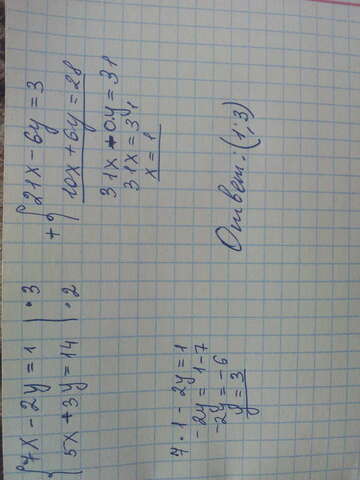 {7x - 2y = 1 | · 3
5x + 3y = 14 | · 2
+ {21x - 6y = 3
10x + 6y = 28
31x + 0y = 31
31x = 31
x = 1
7 · 1 - 2y = 1
-2y = 1 - 7
-2y = -6
y = 3
Ответ: (1; 3)